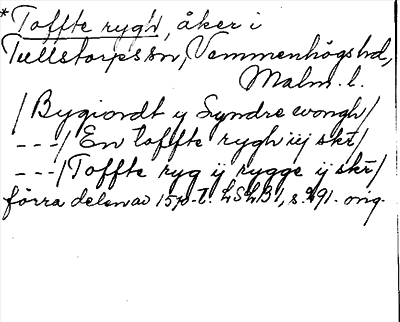 *Toffte rygh, åker i
Tullstorps sn, Vemmenhögs hd,
Malm. l.
/Bygiordt y Syndre wongh/
---/En toffte rygh iij skr/
---/Toffte ryg ij rygge ij skr/
förra delen av 1570-t. LSLB1, s. 291. orig.